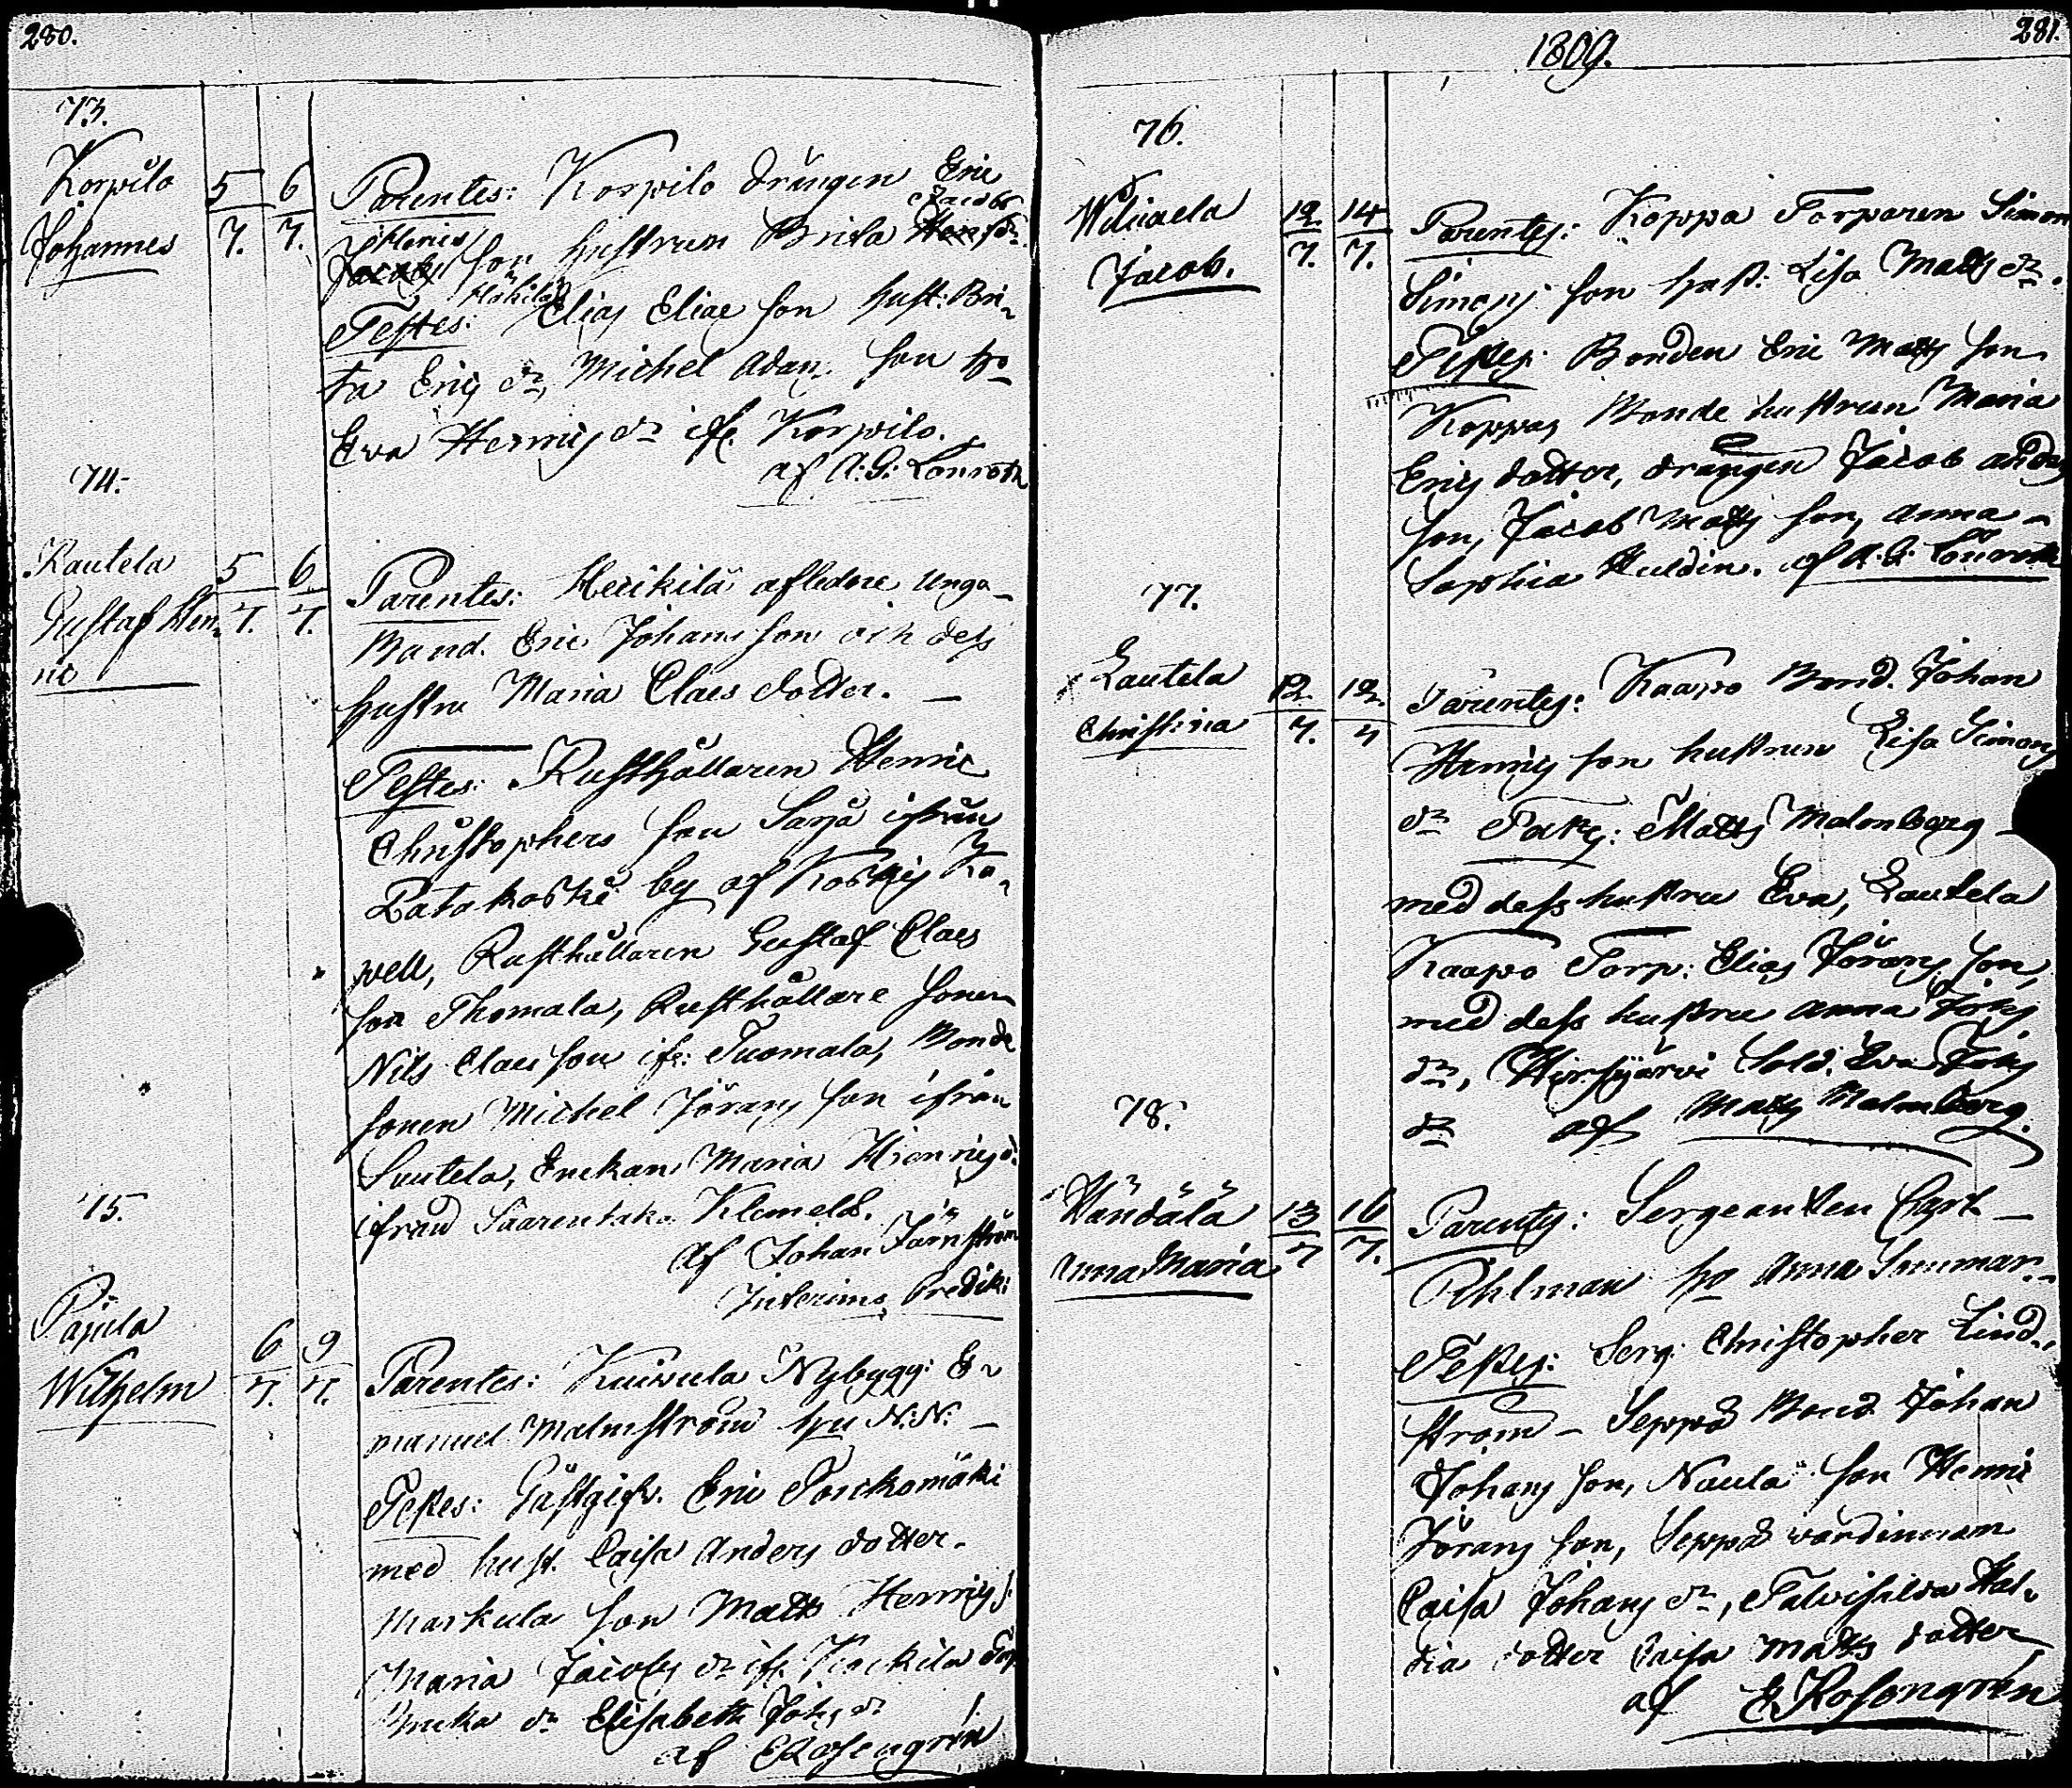 280.
73.
Korpilo
Johannes
5 6
7. 7.
Parentes: Korpilo drängen Eric
Jacobs
Henrics
son hustrun Brita dr
Testes: Elias Eliae son hust: Bri-
ta Erics dr, Michel Adam son ho
Eva Henrics dr ifr. Korpilo.
af A: G: Lönroth
74.
Rautela
Gustaf Hen-
ric
5 6
7. 7.
Parentes: Heikilä afledne unga
Bond. Eric Johans son och dess
hustru Maria Claes dotter. —
Testes: Rusthållaren Henric
Christophers son Sarja ifrån
Patakoski by af Koskis Ka-
pell, Rusthållaren Gustaf Claes
son Thomala, Rusthållare sonen
Nils Claes son ifr: Tuomala, Bonde
sonen Michel Jörans son ifrån
Suutela, Enckan Maria Henrics d:
ifrån Saarentaka Klemelä.
af Johan Järnström
Interims Predik:
75.
Pajula
Wilhelm
6 9
7. 7.
Parentes: Kuiwula Nybygg: E-
manuel Malmström hu N: N: —
Testes: Gästgifv. Eric Torckomäki
med hust. Caisa Anders dotter.
Markula son Matts Henrics s.
Maria Jacobs dr ifr. Kackila
dr Elisabeth Johs dr
af E Rosengrén
1809.
281.
76.
Wiliaela
Jacob.
12 14
7. 7.
Parentes: Koppa Torparen Simon
Simons son hust: Lisa Matts dr.
Testes: Bonden Eric Matts son
Koppa, Bonde hustrun Maria
Erics dotter, drängen Jacob Anders
son, Jacob Matts son, Anna
Sophia Huldin. af A. G: Lönroth
77.
Lautela
Christina
12. 12.
7. 7
Parentes: Kaapo Bond. Johan
Henrics son hustrun Lisa Simons
dr Testes: Matts Malmberg
med dess hustru Eva, Lautela
Kaapo Torp: Elias Jörans son,
med dess hustru Anna Johs
dr, Hirsijärvi Sold. Eva Johs
dr af Matts Malmberg.
78.
Händälä
Anna Maria
13 16
7 7.
Parentes: Sergeanten Carl —
Öhlman ho Anna Summar.
Testes: Serg: Christopher Lind-
ström — Seppä Bond Johan
Johans son, Naula son Henric
Jörans son, Seppä värdinnan
Caisa Johans dr, Talvisilda Hal-
dia dotter Caisa Matts dotter
af E Rosengrén